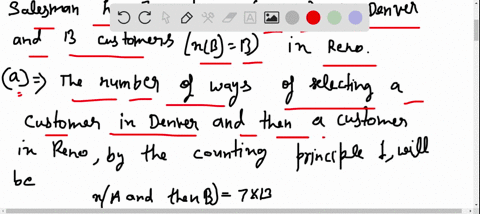 Salesman h Denver
and 13 customers (n(B)=13) in Reno.
(a)⇒ The number of ways of selecting a
customer in Denver and then a customer
in Reno, by the counting principle 1, will
be
n(A and then B) = 7×13